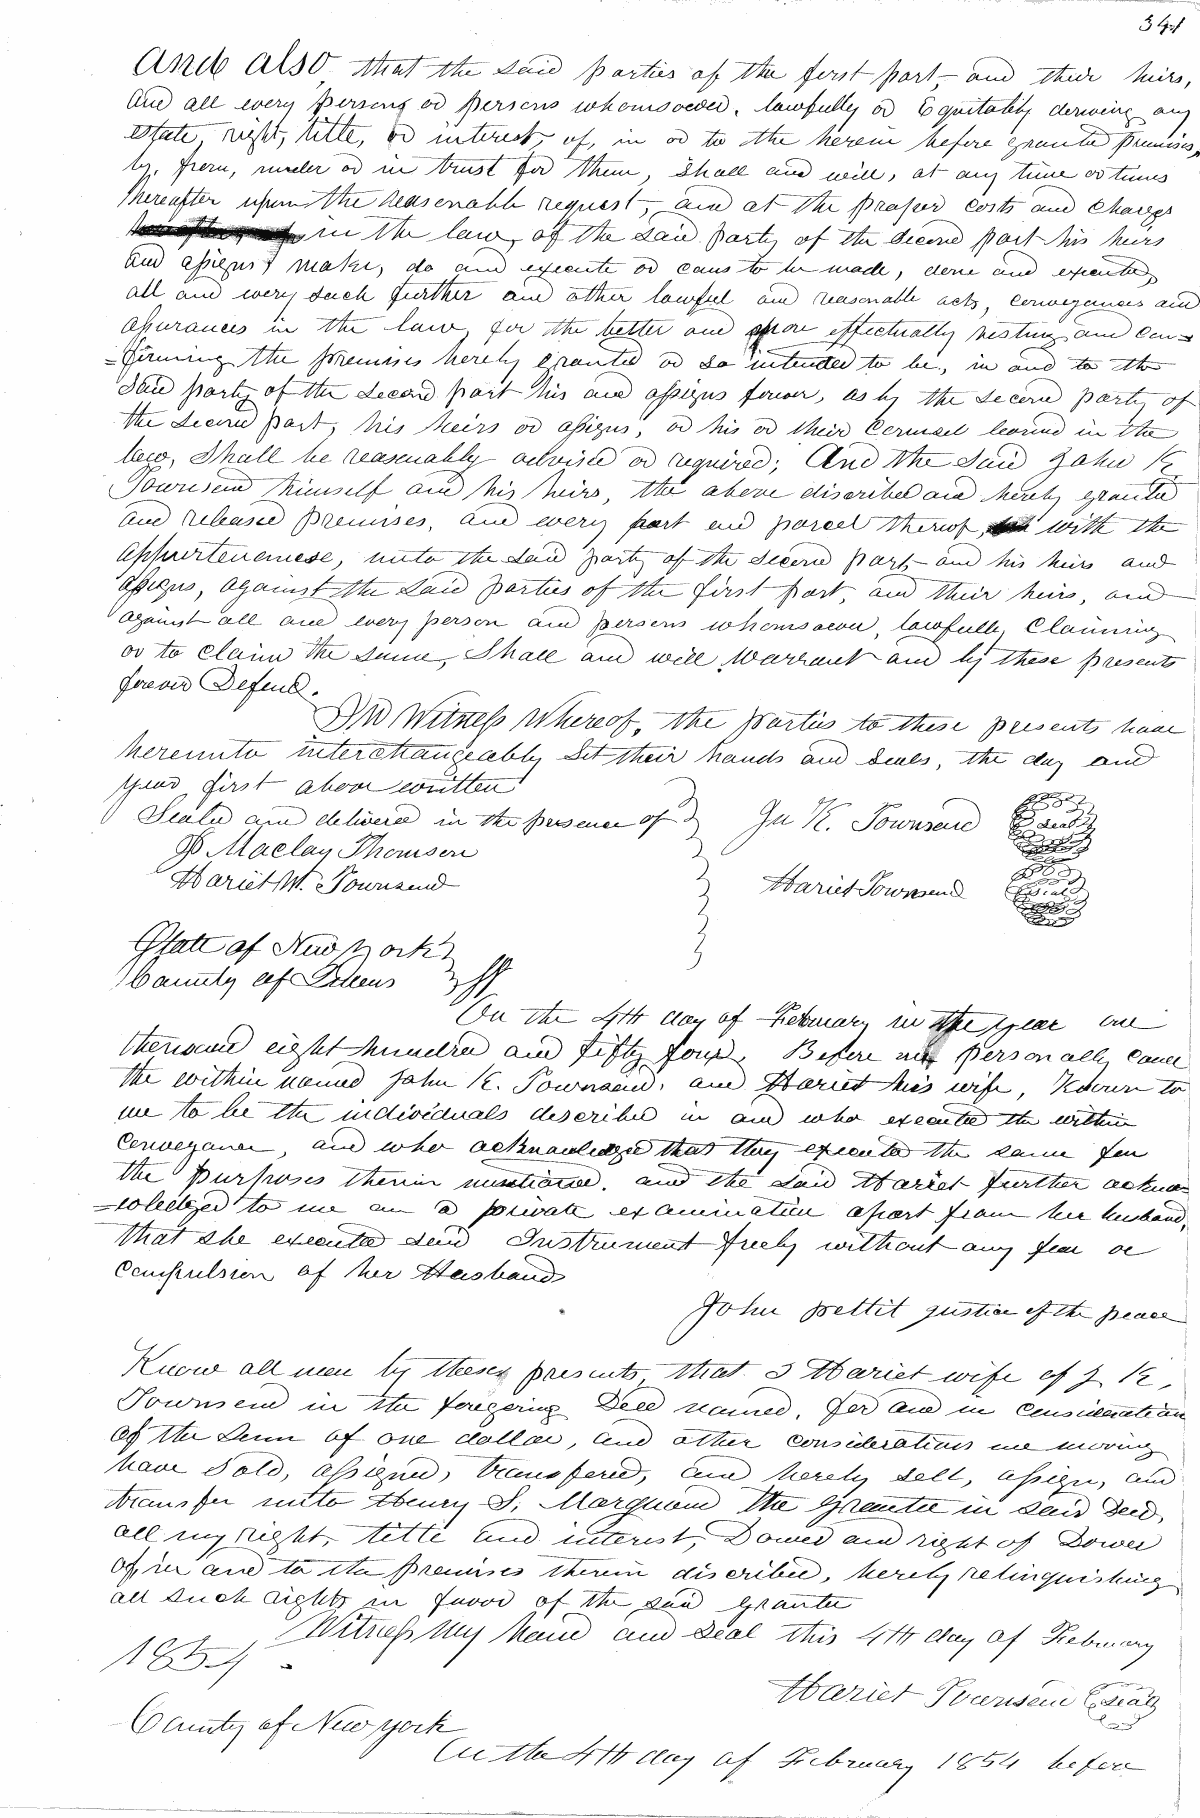 And also that the said parties of the first part, and their heirs,
and all every persons or persons whomsoever, lawfully or Equitably deriving any
estate, right, title, or interest, of, in or to the herein before granted premises,
by, from, under or in trust for them, shall and will, at any time or times
hereafter upon the reasonable request, and at the proper costs and charges
in the law, of the said party of the second part his heirs
and assigns, make, do and execute or caus to be made, done and executed,
all and every such further and other lawful and reasonable acts, conveyances and
assurances in the law, for the better and more effectually vesting and con=
=firming the premises hereby granted or so intended to be, in and to the
said party of the second part his and assigns forever, as by the second party of
the second part, his heirs or assigns, or his or their Counsel learned in the
law, Shall be reasonably advised or required; And the Said John K
Townsend himself and his heirs, the above discribed and hereby granted
and released premises, and every part and parcel thereof, with the
appurtenances, unto the said party of the second part, and his heirs and
assigns, against the said parties of the first part, and their heirs, and
against all and every person and persons whomsoever, lawfully Claiming
or to claim the same, Shall and will Warrant and by these presents
forever Defend.
In Witness Whereof, the parties to these presents have
hereunto interchangeably Set their hands and seals, the day and
year first above written
Sealed and delivered in the presence of
Jn K. Townsend (seal)
Maclay Thomson
Hariet W. Townsend
Hariet Townsend (seal)
State of New York
County of Queens } ss
On the 4th day of February in the year one
thousand eight hundred and fifty four, Before me personally came
the within named John K. Townsend, and Hariet his wife, Known to
me to be the individuals described in and who executed the within
Conveyance, and who acknowledge that they executed the same for
the purposes therein mentioned, and the said Hariet further ackno=
=wledged to me on a private examination apart from her husband,
that she executed said Instrument freely without any fear or
Compulsion of her Husband
John Pettit Justice of the peace
Know all men by these presents, that I Hariet wife of J K,
Townsend in the foregoing Deed named, for and in Consideration
of the Sum of one dollar, and other considerations me moving
have Sold, assigned, transfered, and hereby sell, assign, and
transfer unto Henry S. Marquand the grantee in said Deed,
all my right, title and interest, Dower and right of Dower
of, in and to the premises therein discribed, hereby relinquishing
all such rights in favor of the said grantee
Witness My hand and seal this 4th day of February
1854
Hariet Townsend (seal)
County of New York
On the 4th day of February 1854 before